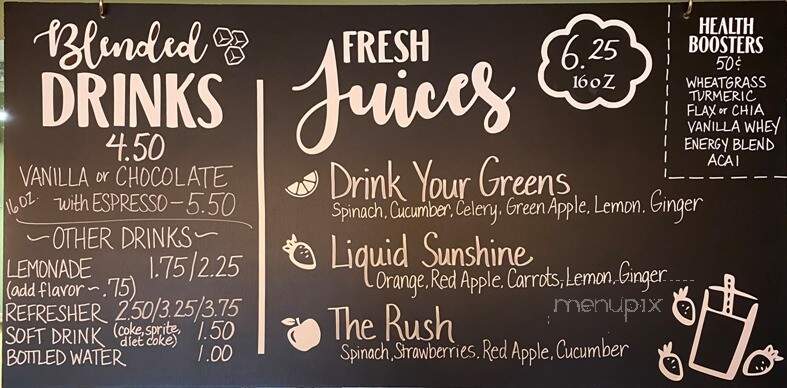 Blended
DRINKS
4.50
VANILLA or CHOCOLATE
16 oz. with ESPRESSO - 5.50
~OTHER DRINKS~
LEMONADE 1.75/2.25
(add flavor ~ .75)
REFRESHER 2.50/3.25/3.75
SOFT DRINK (coke, sprite, diet coke) 1.50
BOTTLED WATER 1.00
FRESH
Juices
6.25
16 oz
Drink Your Greens
Spinach, Cucumber, Celery, Green Apple, Lemon, Ginger
Liquid Sunshine
Orange, Red Apple, Carrots, Lemon, Ginger
The Rush
Spinach, Strawberries, Red Apple, Cucumber
HEALTH
BOOSTERS
50¢
WHEATGRASS
TURMERIC
FLAX or CHIA
VANILLA WHEY
ENERGY BLEND
ACAI
menupix